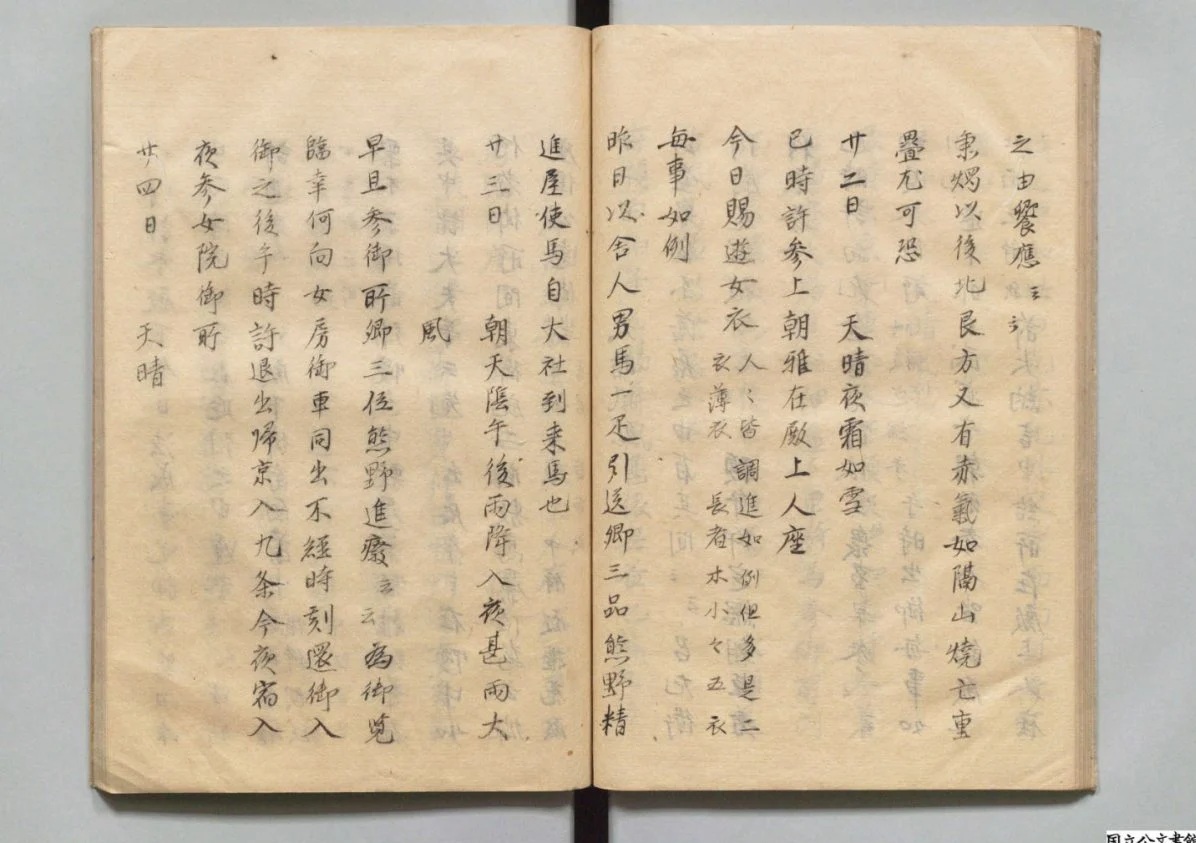 之由饗應云々
秉燭以後北艮方又有赤氣如隔山燒亡重
疊尤可恐
廿二日　天晴夜霜如雪
巳時許参上朝雅在殿上人座
今日賜遊女衣　人々皆調進如例但多是二
衣薄衣　長者木小々五衣
毎事如例
昨日以舎人男馬一疋引送卿三品熊野精
進屋使馬自大社到来馬也
廿三日　朝天陰午後雨降入夜甚雨大
風
早旦参御所卿三位熊野進癈云云為御覧
臨幸何向女房御車同出不經時刻還御入
御之後午時許退出歸京入九条今夜宿入
夜参女院御所
廿四日　天晴
国立公文書館